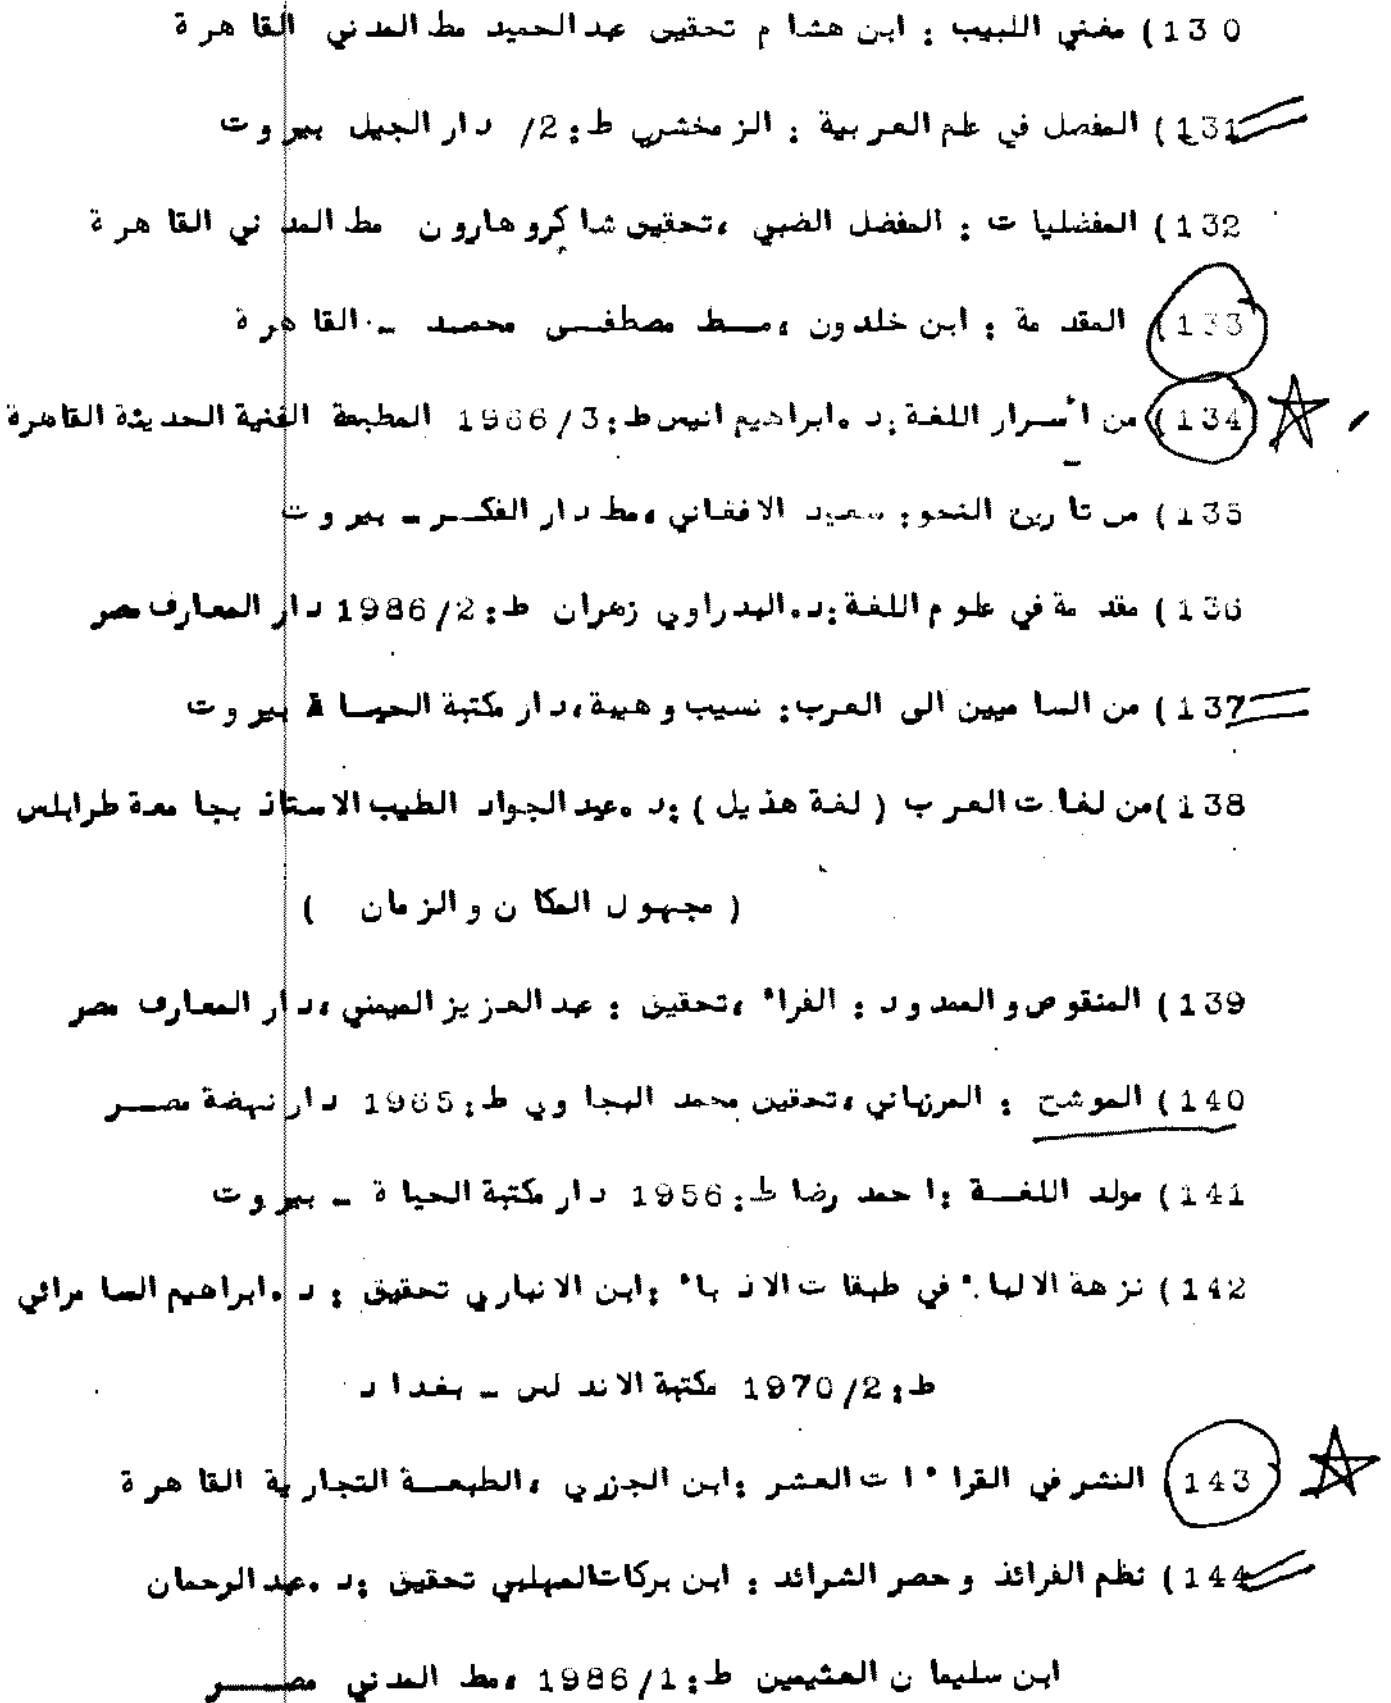 130) مغني اللبيب : ابن هشام تحقيق عبدالحميد مط المدني القاهرة
131) المفصل في علم العربية : الزمخشري ط:2/ دار الجيل بيروت
132) المفضليات : المفضل الضبي ،تحقيق شاكر وهارون مط المدني القاهرة
133) المقدمة : ابن خلدون ،مط مصطفى محمد ـ القاهرة
134) من أسرار اللغة :د .ابراهيم انيس ط:1966/3 المطبعة الفنية الحديثة القاهرة
135) من تاريخ النحو : سعيد الافغاني ،مط دار الفكر ـ بيروت
136) مقدمة في علوم اللغة :د.البدراوي زهران ط:1986/2 دار المعارف مصر
137) من الساميين الى العرب : نسيب وهيبة ،دار مكتبة الحياة بيروت
138) من لغات العرب ( لغة هذيل ) :د .عبدالجواد الطيب الاستاذ بجامعة طرابلس
( مجهول المكان والزمان )
139) المنقوص والممدود : الفراء ،تحقيق : عبدالعزيز الميمني ،دار المعارف مصر
140) الموشح : المرزباني ،تحقيق محمد البجاوي ط:1965 دار نهضة مصر
141) مولد اللغة :احمد رضا ط:1956 دار مكتبة الحياة ـ بيروت
142) نزهة الالباء في طبقات الادباء :ابن الانباري تحقيق : د .ابراهيم السامرائي
ط:1970/2 مكتبة الاندلس ـ بغداد
143) النشر في القراءات العشر :ابن الجزري ،الطبعة التجارية القاهرة
144) نظم الفرائد وحصر الشرائد : ابن بركات المهلبي تحقيق :د .عبدالرحمان
ابن سليمان العثيمين ط:1986/1 ،مط المدني مصر